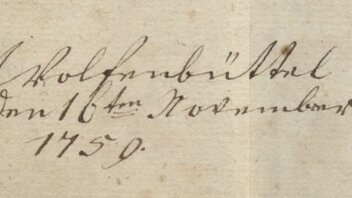 Wolfenbüttel
den 16ten November
1759.